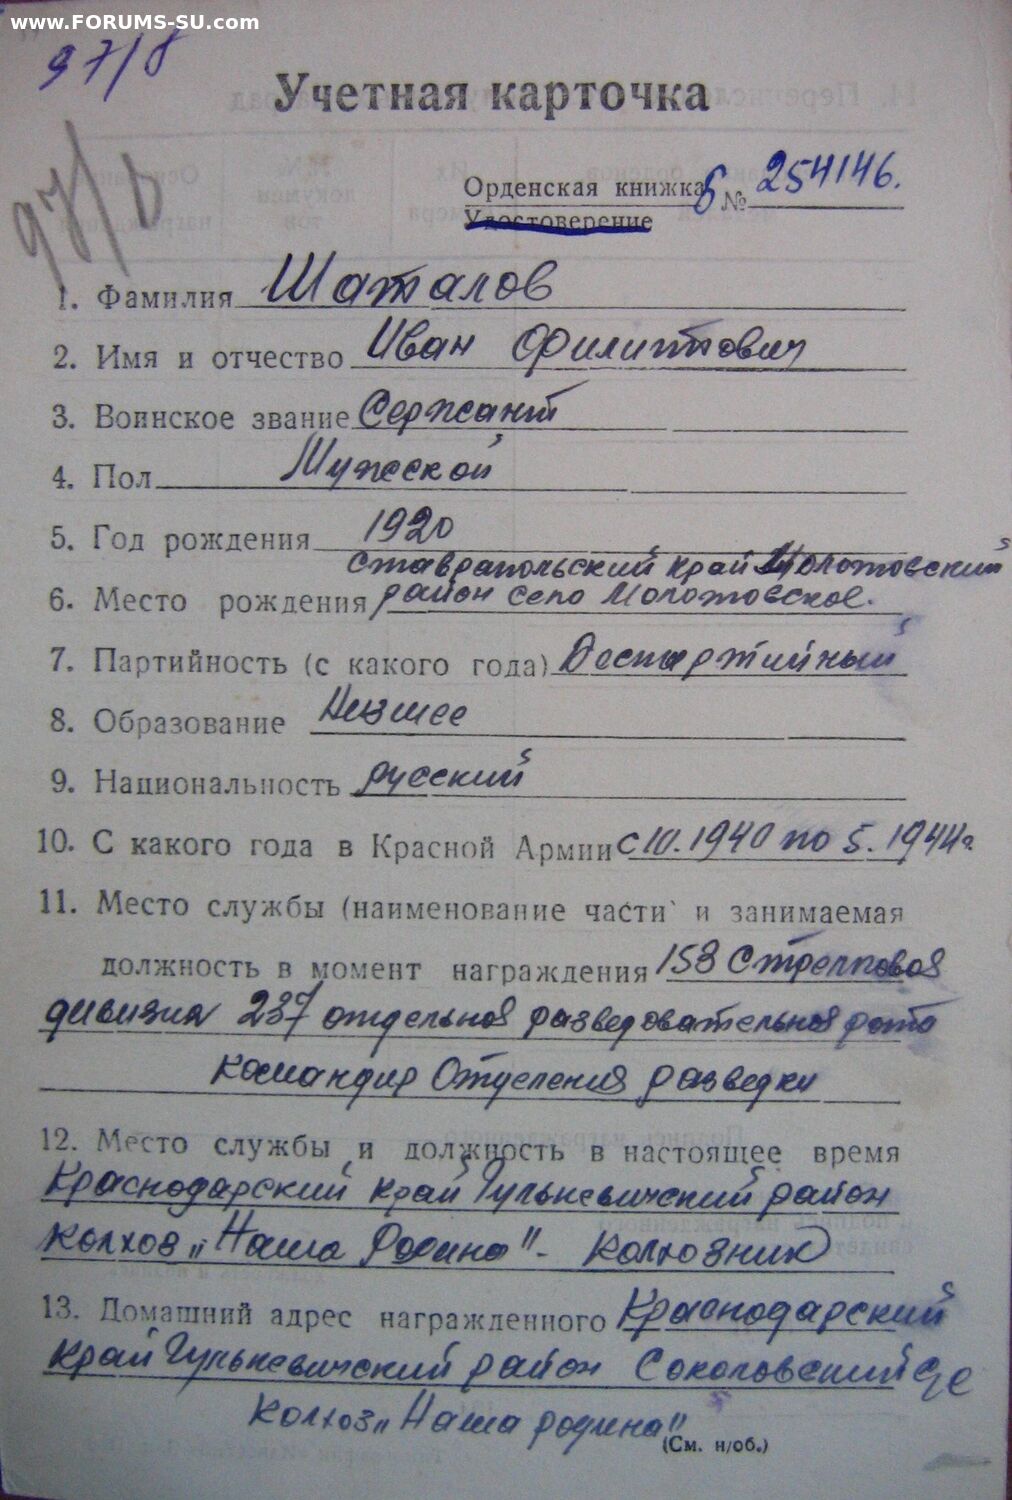 www.FORUMS-SU.com
97/8
Учетная карточка
97/6
Орденская книжка Б № 254146.
Удостоверение
1. Фамилия Шаталов
2. Имя и отчество Иван Филиппович
3. Воинское звание Сержант
4. Пол Мужской
5. Год рождения 1920
Ставрапольский край Молотовский
6. Место рождения район село Молотовское.
7. Партийность (с какого года) Беспартийный
8. Образование Низшее
9. Национальность русский
10. С какого года в Красной Армии с 10. 1940 по 5. 1944г.
11. Место службы (наименование части и занимаемая
должность в момент награждения 158 Стрелковоя
дивизия 237 отдельноя разведовательноя рота
командир Отделения разведки
12. Место службы и должность в настоящее время
Краснодарский край Гулькевичский район
колхоз „Наша Родина" - колхозник
13. Домашний адрес награжденного Краснодарский
край Гулькевичский район Соколовский
колхоз „Наша родина"
(См. н/об.)